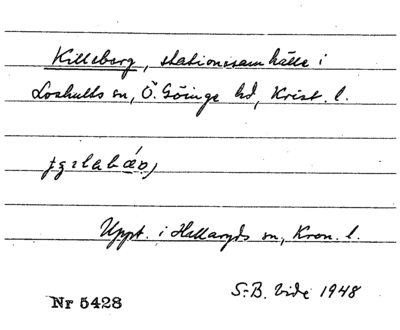 Killeberg, stationssamhälle i
Loshults sn, Ö. Göinge hd, Krist. l.
Uppt. i Hallaryds sn, Kron. l.
S.-B. Vide 1948
Nr 5428